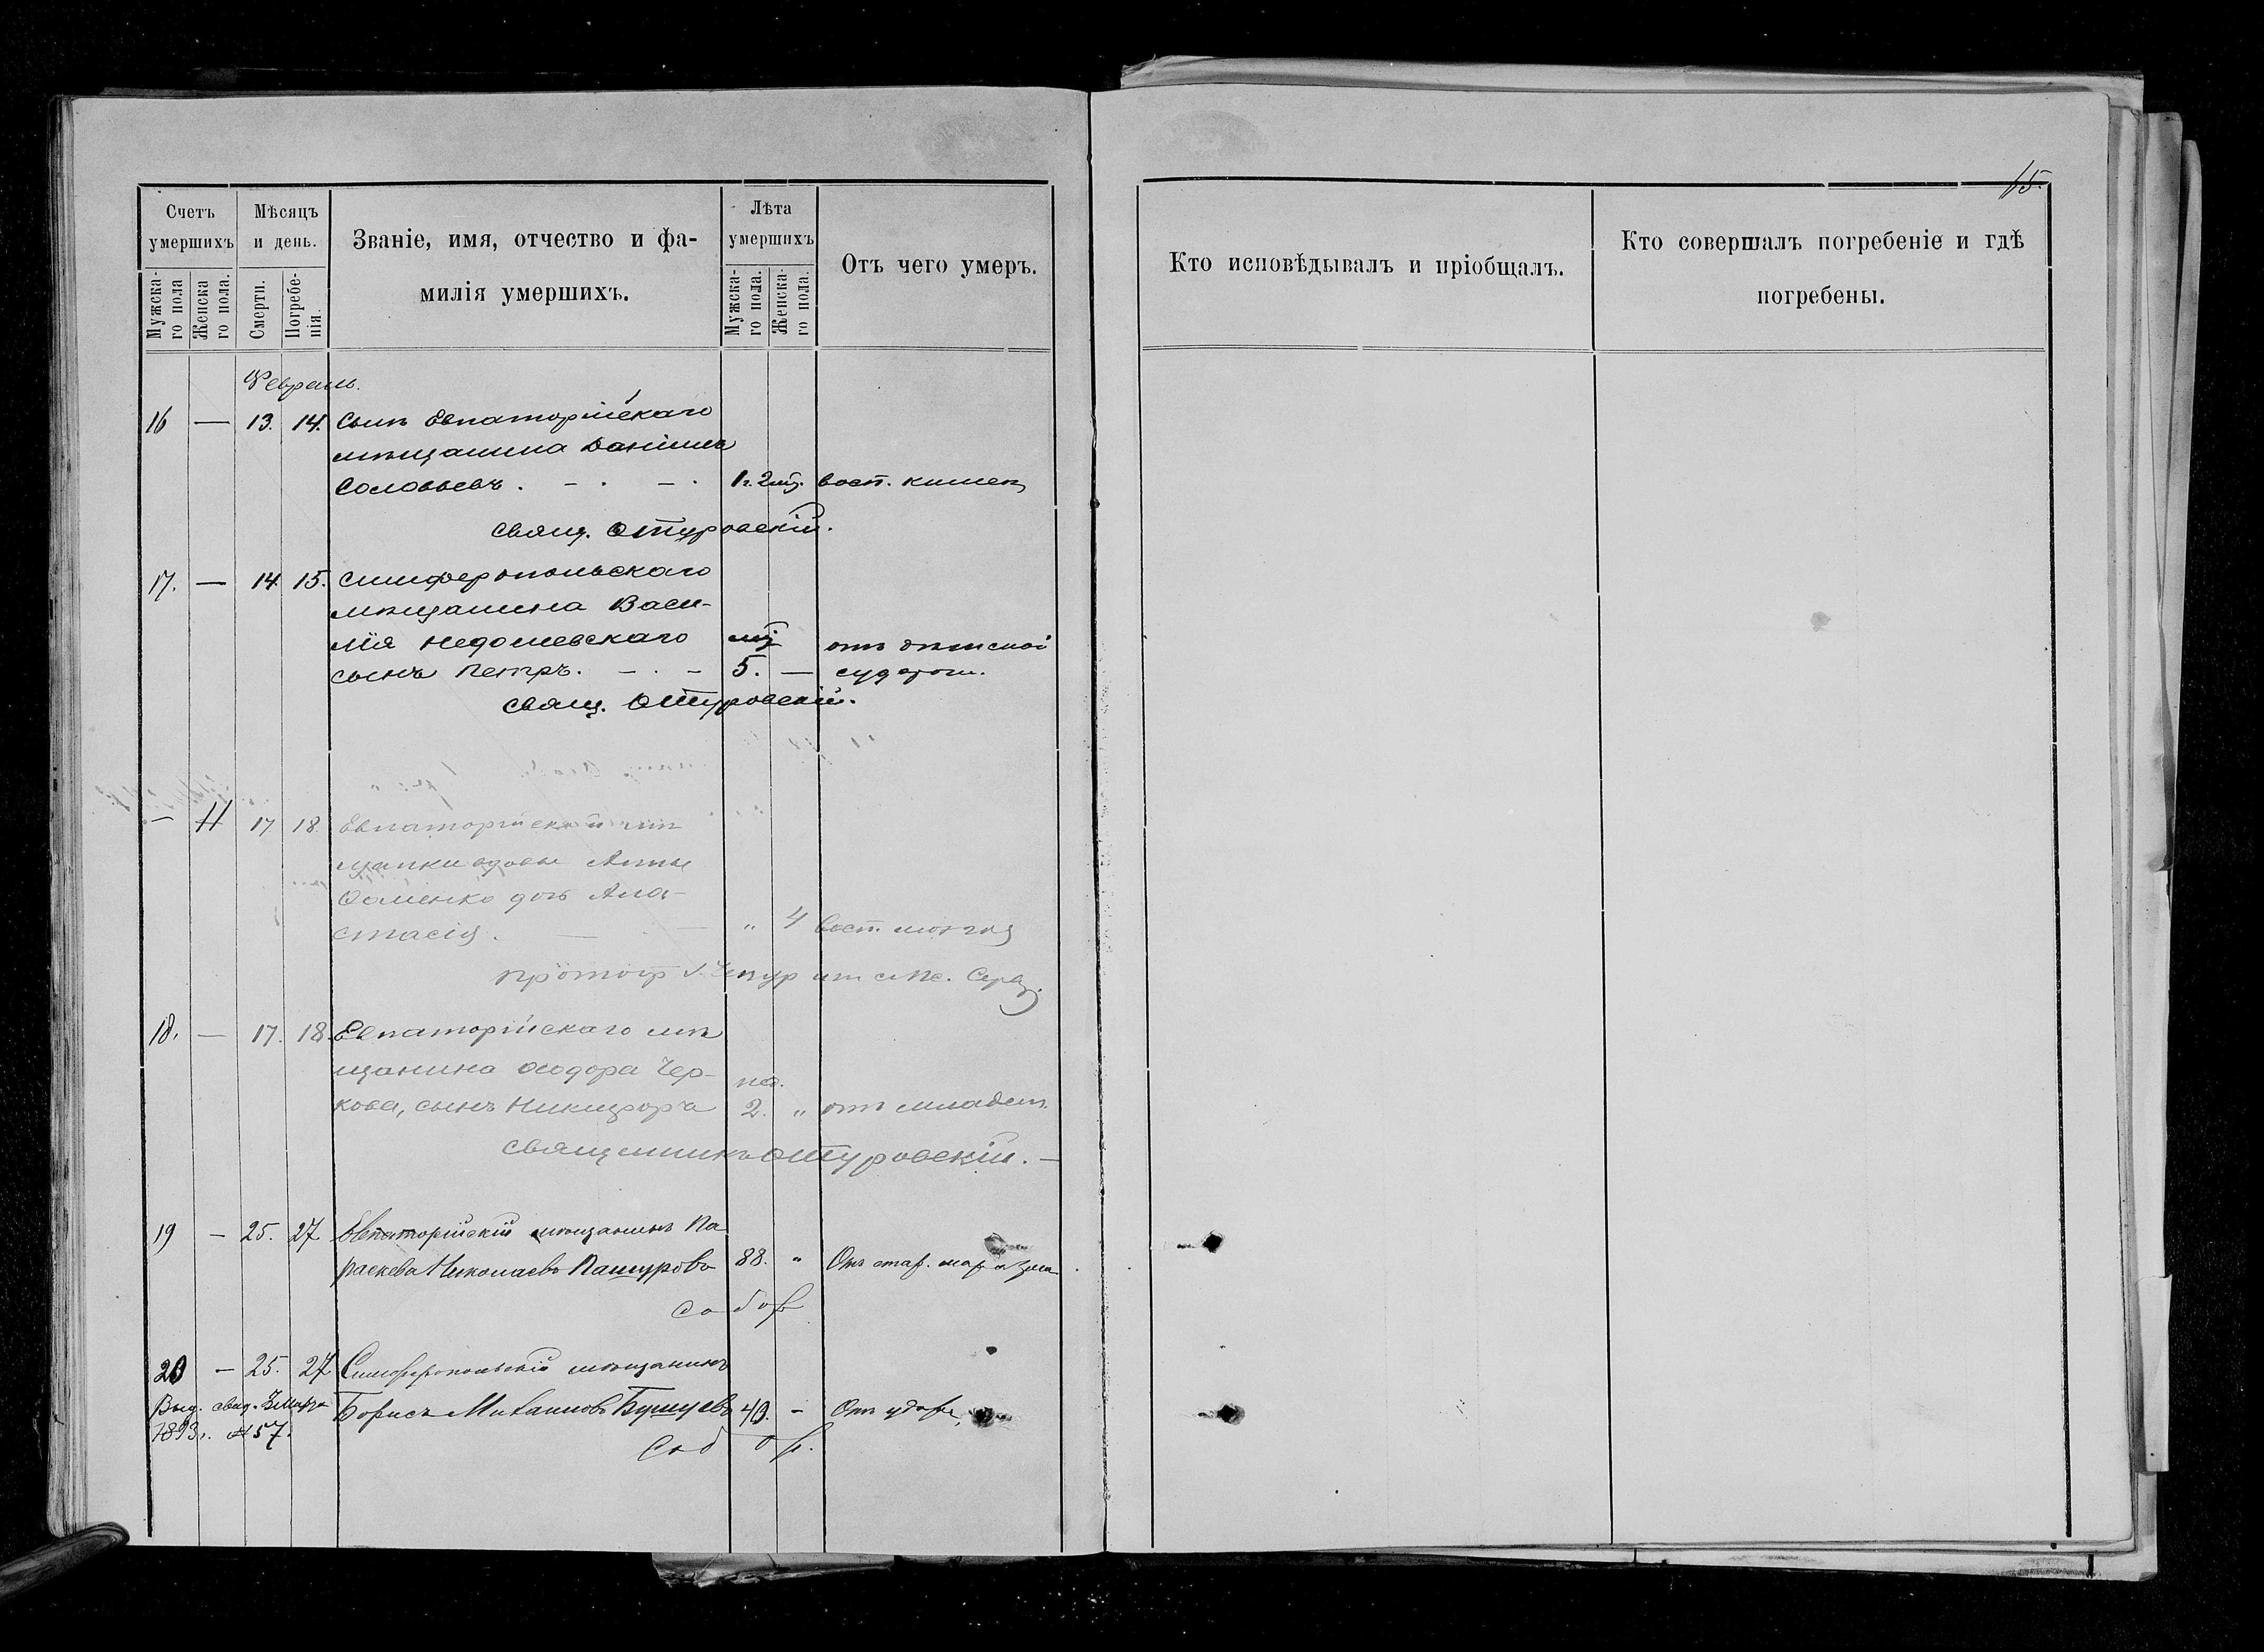 15.
Счетъ умершихъ
Мужска-го пола
Женска го пола.
Мѣсяцъ и день.
Смерти.
Погребе-нія.
Званіе, имя, отчество и фа-
милія умершихъ.
Лѣта умершихъ
Мужска-го пола.
Женска-го пола.
Отъ чего умеръ.
Кто исповѣдывалъ и пріобщалъ.
Кто совершалъ погребеніе и гдѣ
погребены.
Февраль.
16 — 13. 14. Сынъ Евпаторійскаго
мѣщанина Даніилъ
Соловьевъ. - . - . 1 г. 2 мц. восп. кишек
Свящ. Отуровскій.
17. — 14 15. Симферопольскаго
мѣщанина Васи-
лія Недошевскаго мц отъ дѣтской
сынъ Петръ. - . - 5. — судороги.
Свящ. Отуровскій.
— 11 17 18. Евпаторійской мѣ
щанки вдовы Анны
дочь Ана-
стасія. — „ 4 восп. мозга
18. — 17. 18. Евпаторійскаго мѣ
щанина Ѳеодора Чер-
кова, сынъ Никифоръ 2. „ отъ младен.
Священникъ Отуровскій. —
19 — 25. 27 Евпаторійскій мѣщанинъ Па
раскева Николаевъ Пашурова 88. „ Отъ стар. маразма
Собор
20 — 25. 27 Симферопольскій мѣщанинъ
Выд. свид. 3 Марта Борисъ Михаиловъ Бушуевъ 40. — Отъ удара
1893 г. № 57. Собор.